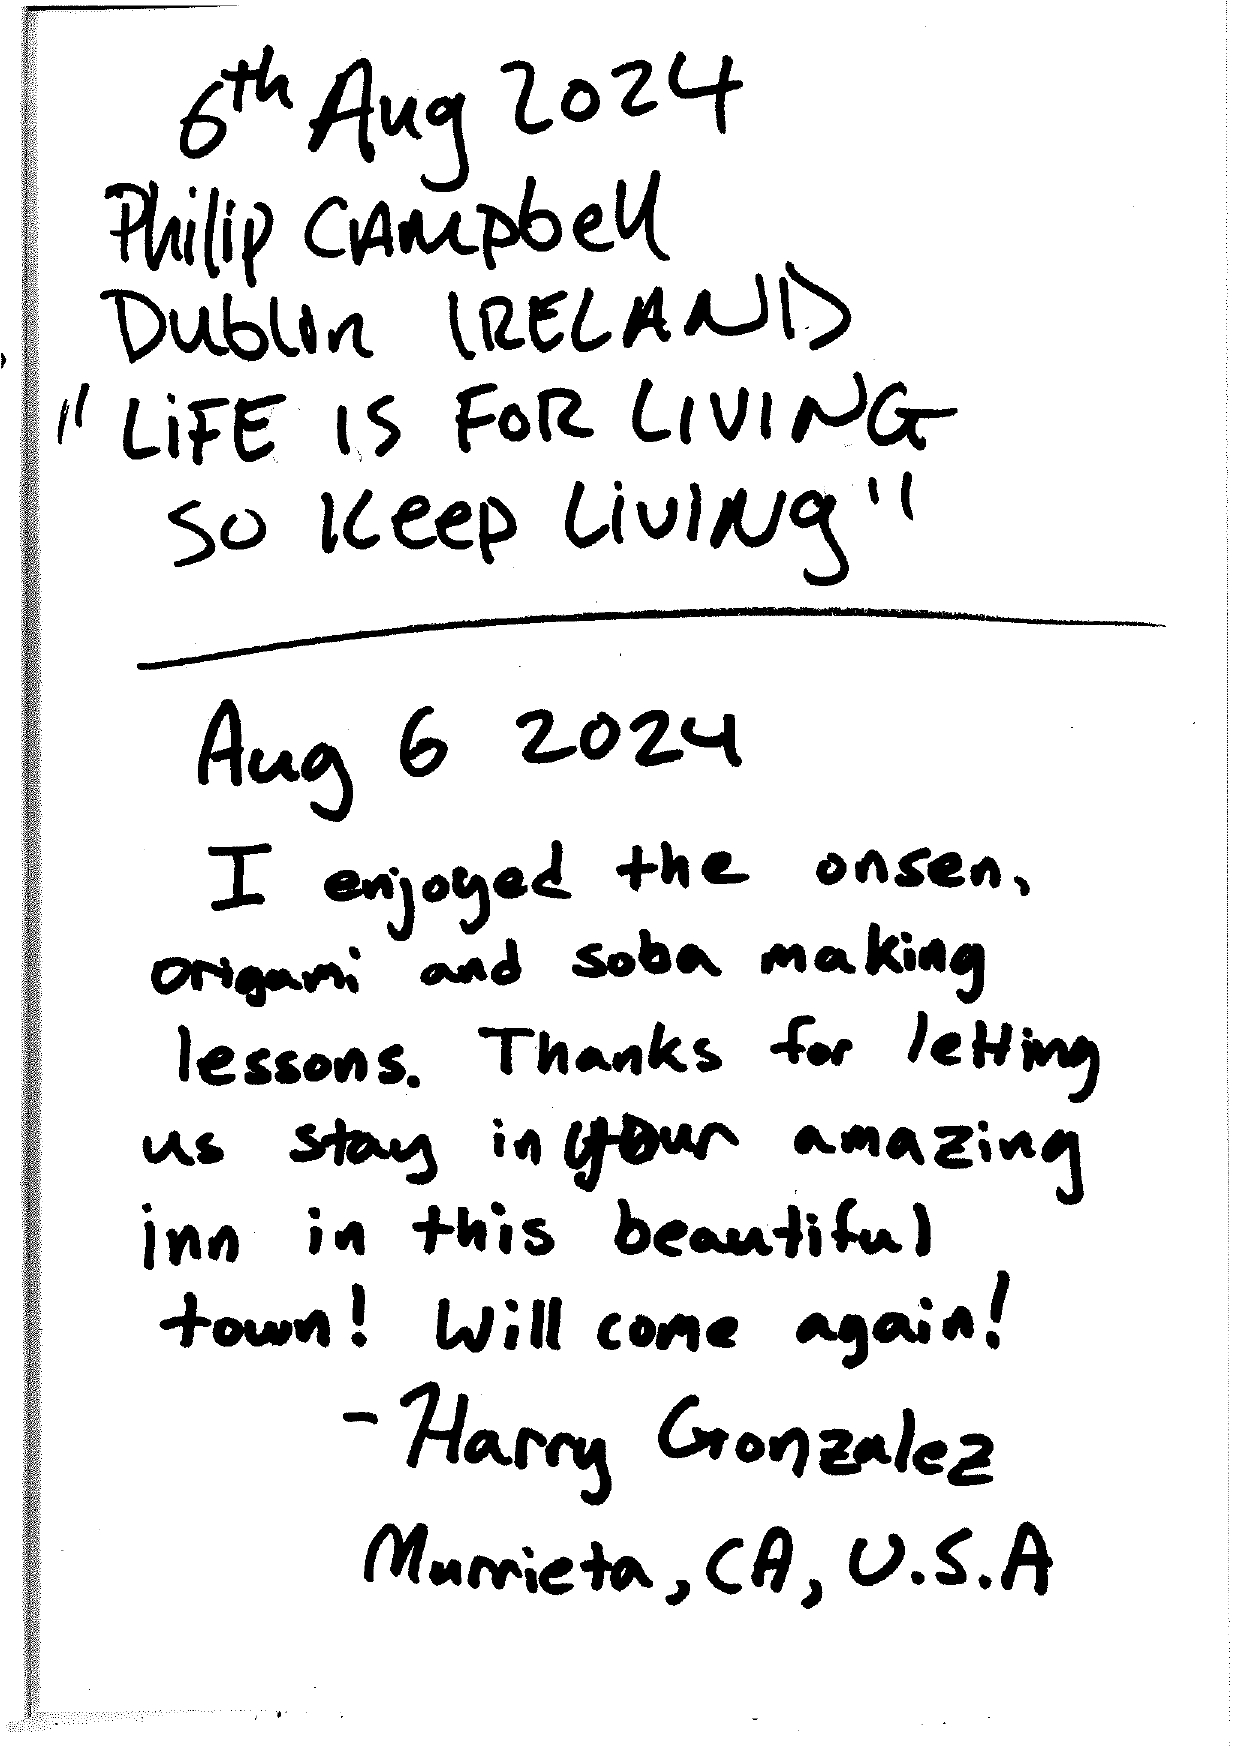 6th Aug 2024
Philip CAMpbell
Dublin IRELAND
"LiFE IS FOR LIVING
SO Keep LiVING"
Aug 6 2024
I enjoyed the onsen,
origami and soba making
lessons. Thanks for letting
us stay in your amazing
inn in this beautiful
town! Will come again!
- Harry Gonzalez
Murrieta, CA, U.S.A